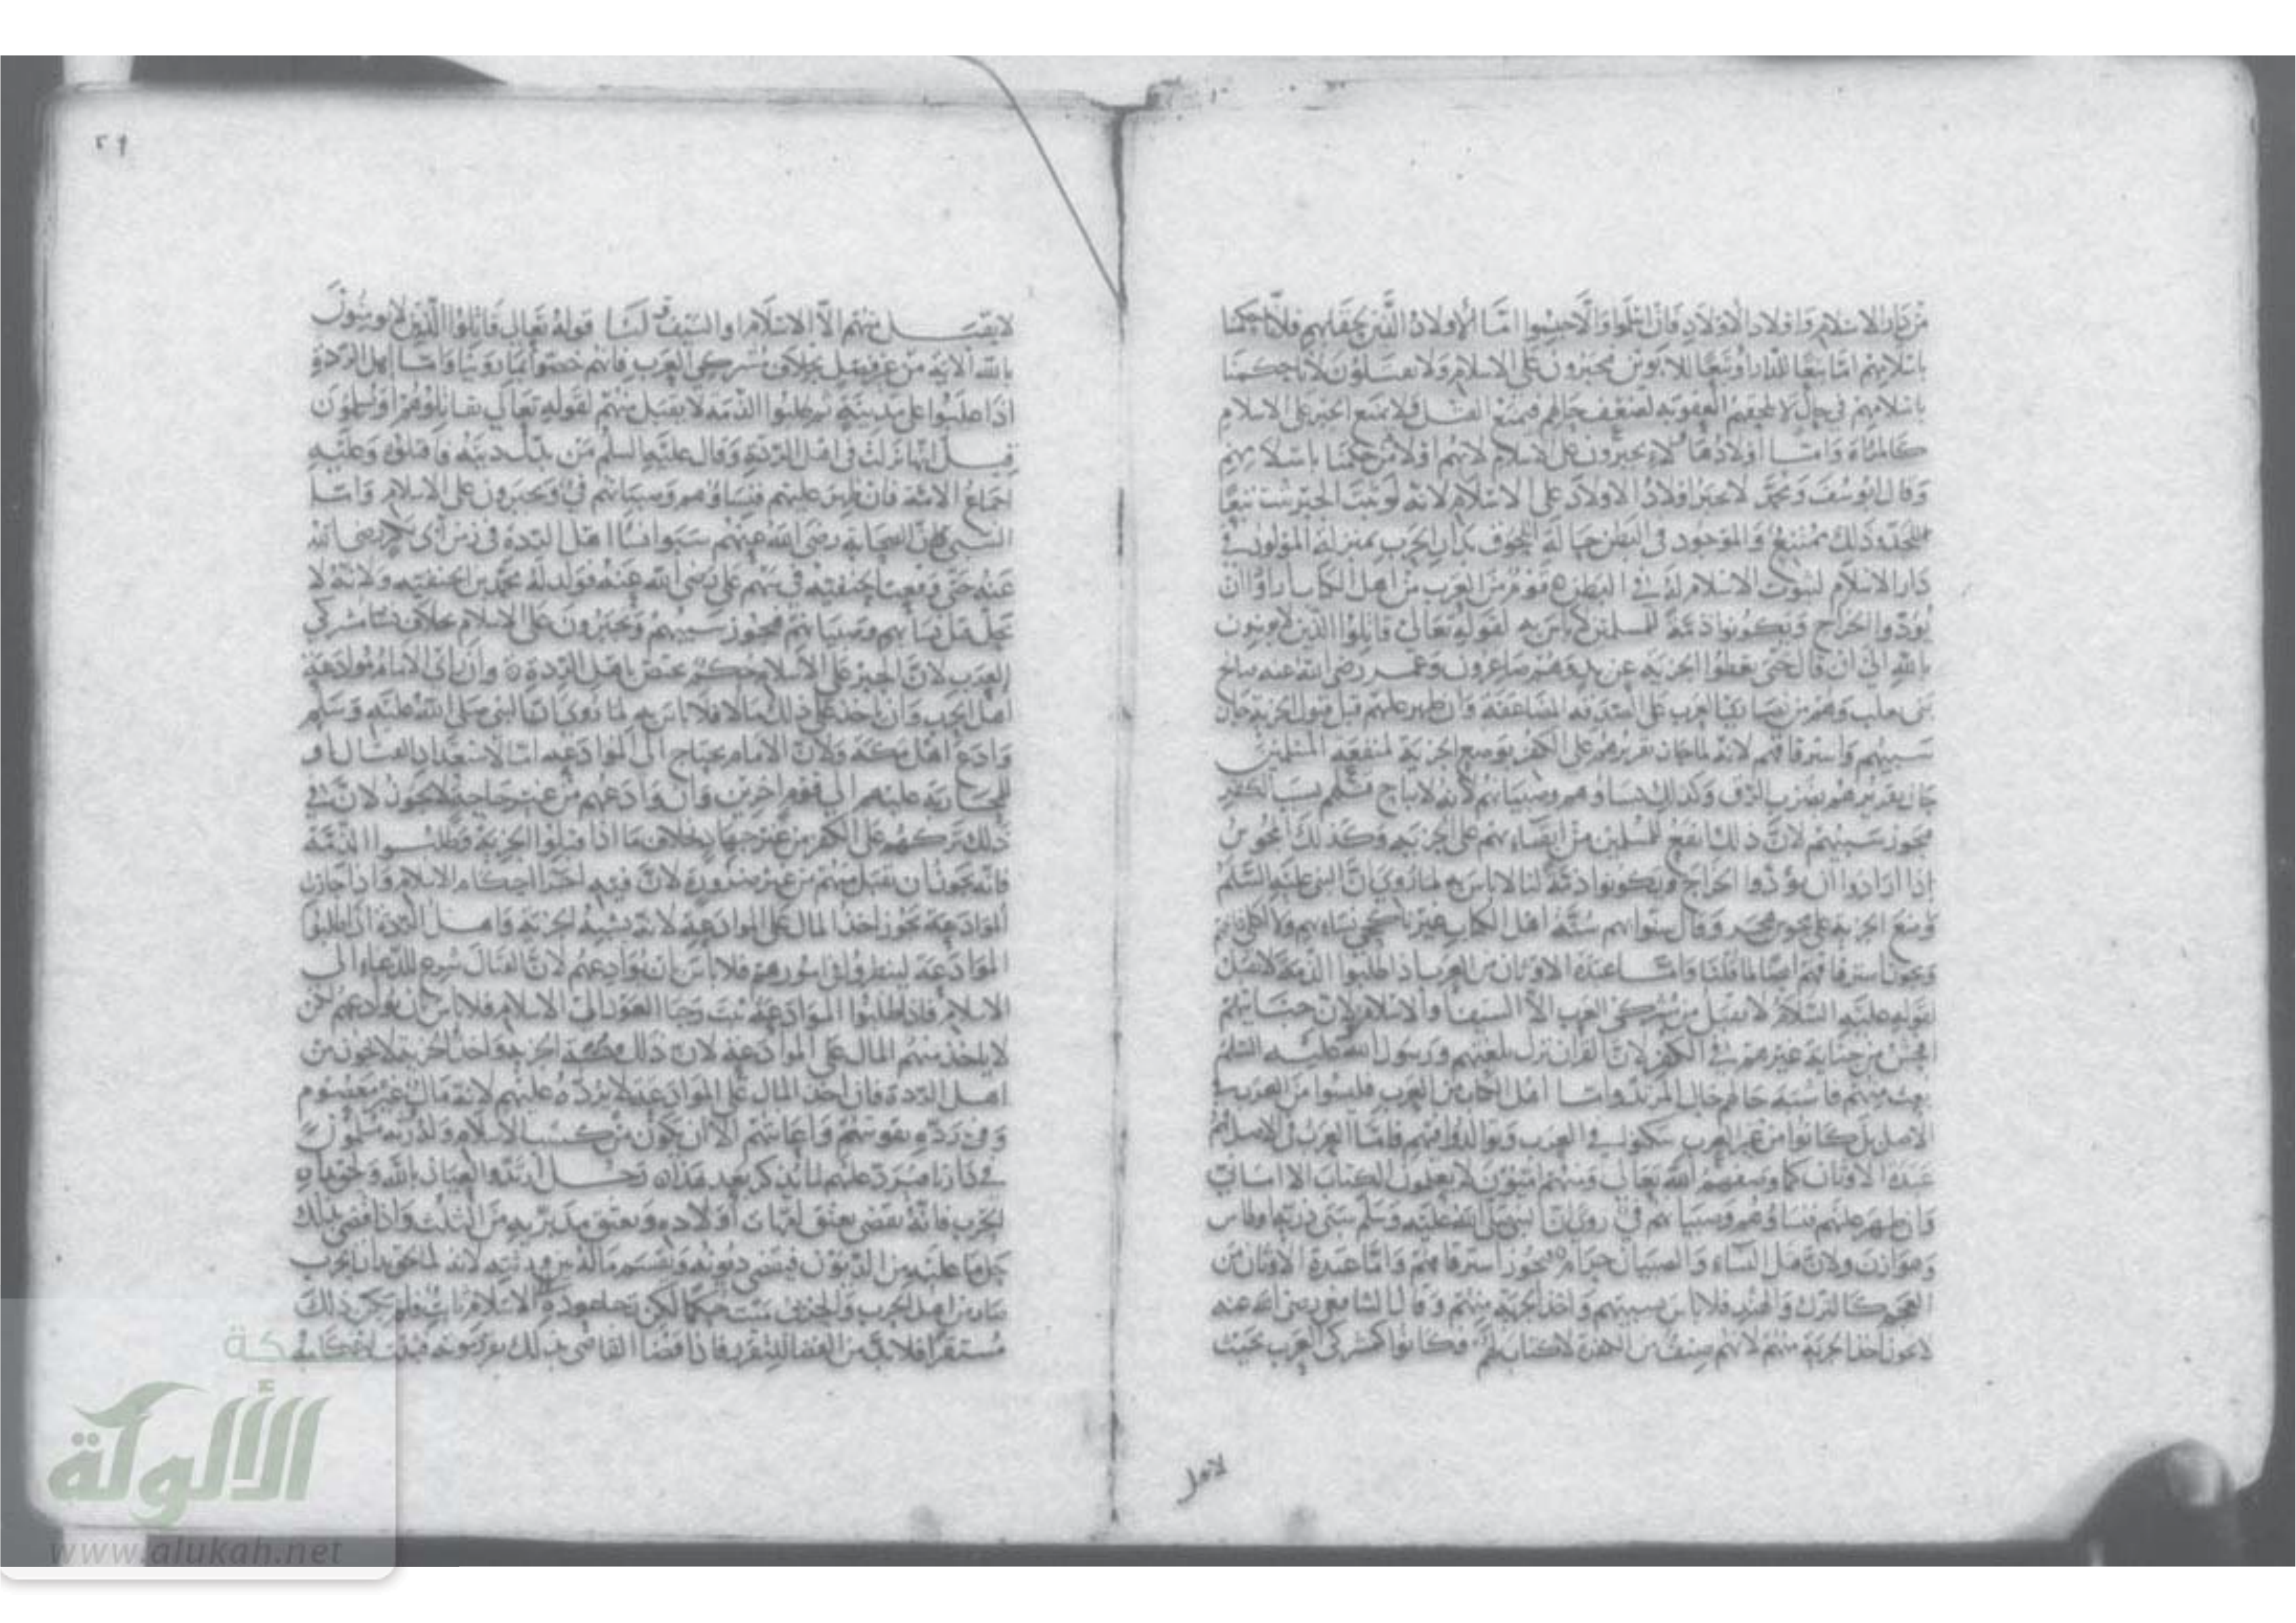 من دار الاسلام واولاد الاولاد فان اسلموا والا حبسوا اما الأولاد الذين فلانا حكمنا
باسلامهم اما تبعا للدار او تبعا للابوين يجبرون على الاسلام ولا يقتلون لانا حكمنا
باسلامهم في حال لا العقوبة لضعف حالهم فيمنع القتل ولا يمنع الجبر على الاسلام
كالمرأة واما اولادهما لا يجبرون على الاسلام لانهم اولاد من حكمنا باسلامهم
وقال ابو يوسف ومحمد لا يجبر اولاد الاولاد على الاسلام لانه لو ثبت الجبر ثبت تبعا
للجد وذلك ممتنع والموجود في البطن حالة اللحوق بدار الحرب بمنزلة المولود في
دار الاسلام لثبوت الاسلام له في البطن قوم من العرب من اهل الكتاب ارادوا ان
يؤدوا الخراج ويكونوا ذمة للمسلمين لا باس به لقوله تعالى قاتلوا الذين لا يؤمنون
بالله الى ان قال حتى يعطوا الجزية عن يد وهم صاغرون وعمر رضي الله عنه صالح
بني تغلب وهم من نصارى العرب على الصدقة المضاعفة وان ظهر عليهم قبل قبول الجزية جاز
سبيهم واسترقاقهم لانه لما جاز تقريرهم على الكفر بوضع الجزية لمنفعة المسلمين
جاز تقريرهم بضرب الرق وكذلك نساؤهم وصبيانهم لانه لا يباح قتلهم بسبب الكفر
فيجوز سبيهم لان ذلك انفع للمسلمين من ابقاءهم على الجزية وكذلك المجوس
اذا ارادوا ان يؤدوا الخراج ويكونوا ذمة لنا لا باس به لما روي ان النبي عليه السلم
وضع الجزية على مجوس هجر وقال سنوا بهم سنة اهل الكتاب غير ناكحي نساءهم ولا اكلي ذبائحهم
ويجوز استرقاقهم ايضا لما قلنا واما عبدة الاوثان من العرب اذا طلبوا الذمة لا تقبل
لقوله عليه السلام لا يقبل من مشركي العرب الا السيف او الاسلام ولان جنايتهم
افحش من جناية غيرهم في الكفر لان القران نزل بلغتهم ورسول الله عليه السلم
بعث منهم فاشبه حالهم حال المرتد واما اهل الكتاب من العرب فليسوا من العرب في
الاصل بل كانوا من غير العرب سكنوا في العرب وتوالدوا فيهم فاما العرب في الاصل هم
عبدة الاوثان كما وصفهم الله تعالى ومنهم اميون لا يعلمون الكتاب الا اماني
وان ظهر عليهم نساؤهم وصبيانهم فيء روي ان النبي صلى الله عليه وسلم سبى ذرية اوطاس
وهوازن ولان قتل النساء والصبيان حرام فيجوز استرقاقهم واما عبدة الاوثان من
العجم كالترك والهند فلا باس بسبيهم واخذ الجزية منهم وقال الشافعي رضي الله عنه
لا يجوز اخذ الجزية منهم لانهم صنف من الكفرة لا كتاب لهم وكانوا كمشركي العرب بحيث
٢٩
لا يقبل منهم الا الاسلام او السيف لنا قوله تعالى قاتلوا الذين لا يؤمنون
بالله الاية من غير فصل بخلاف مشركي العرب فانهم خصوا بما روينا واما اهل الردة
اذا غلبوا على مدينة ثم طلبوا الذمة لا يقبل منهم لقوله تعالى تقاتلونهم او يسلمون
قيل انها نزلت في اهل الردة وقال عليه السلم من بدل دينه فاقتلوه وعليه
اجماع الامة فان ظهر عليهم فنساؤهم وصبيانهم فيء ويجبرون على الاسلام واما
السبي فلان الصحابة رضي الله عنهم سبوا نساء اهل الردة في زمن ابي بكر رضي الله
عنه حتى وقعت الحنفية في سهم علي رضي الله عنه فولد له محمد بن الحنفية ولانه لا
يحل قتل نساءهم وصبيانهم فيجوز سبيهم ويجبرون على الاسلام بخلاف نساء مشركي
العرب لان الجبر على الاسلام حكم يختص باهل الردة وان راى الامام موادعة
اهل الحرب وان ياخذ على ذلك مالا فلا باس به لما روي ان النبي صلى الله عليه وسلم
وادع اهل مكة ولان الامام يحتاج الى الموادعة اما لاستعداد القتال او
لمحاربة عليهم الى قوم اخرين وان وادعهم من غير حاجة لا يجوز لان في
ذلك تركهم على الكفر من غير جهاد بخلاف ما اذا قبلوا الجزية وطلبوا الذمة
فانه يجوز ان يقبل منهم من غير ضرورة لان فيه اجراء احكام الاسلام واذا جازت
الموادعة يجوز اخذ المال على الموادعة لانه يشبه الجزية واهل الردة اذا طلبوا
الموادعة لينظروا في امورهم فلا باس بان يوادعهم لان القتال شرع للدعاء الى
الاسلام فاذا طلبوا الموادعة ثبت رجاء العود الى الاسلام فلا باس بان يوادعهم لكن
لا ياخذ منهم المال على الموادعة لان ذلك الجزية واخذ الجزية لا يجوز من
اهل الردة فان اخذ المال على الموادعة لا يرده عليهم لانه مال غير معصوم
وفي رده تقويتهم واعانتهم الا ان يكون من كسب الاسلام وله ورثة مسلمون
في دارنا فيرد عليهم لما يذكر بعد هذا رجل ارتد والعياذ بالله ولحق بدار
الحرب فانه يقضى بعتق امهات اولاده وبعتق مدبريه من الثلث واذا قضى بذلك
حل ما عليه من الديون فيقضى ديونه ويقسم ماله بين ورثته لانه لما لحق بدار الحرب
صار من اهل الحرب والحربي ميت حكما لكن رجاء عوده الى الاسلام ثابت فلم يكن ذلك
مستقرا فلا بد من القضاء للتقرر فاذا قضى القاضي بذلك تقرر موته فيثبت احكامه
الألوكة
www.alukah.net